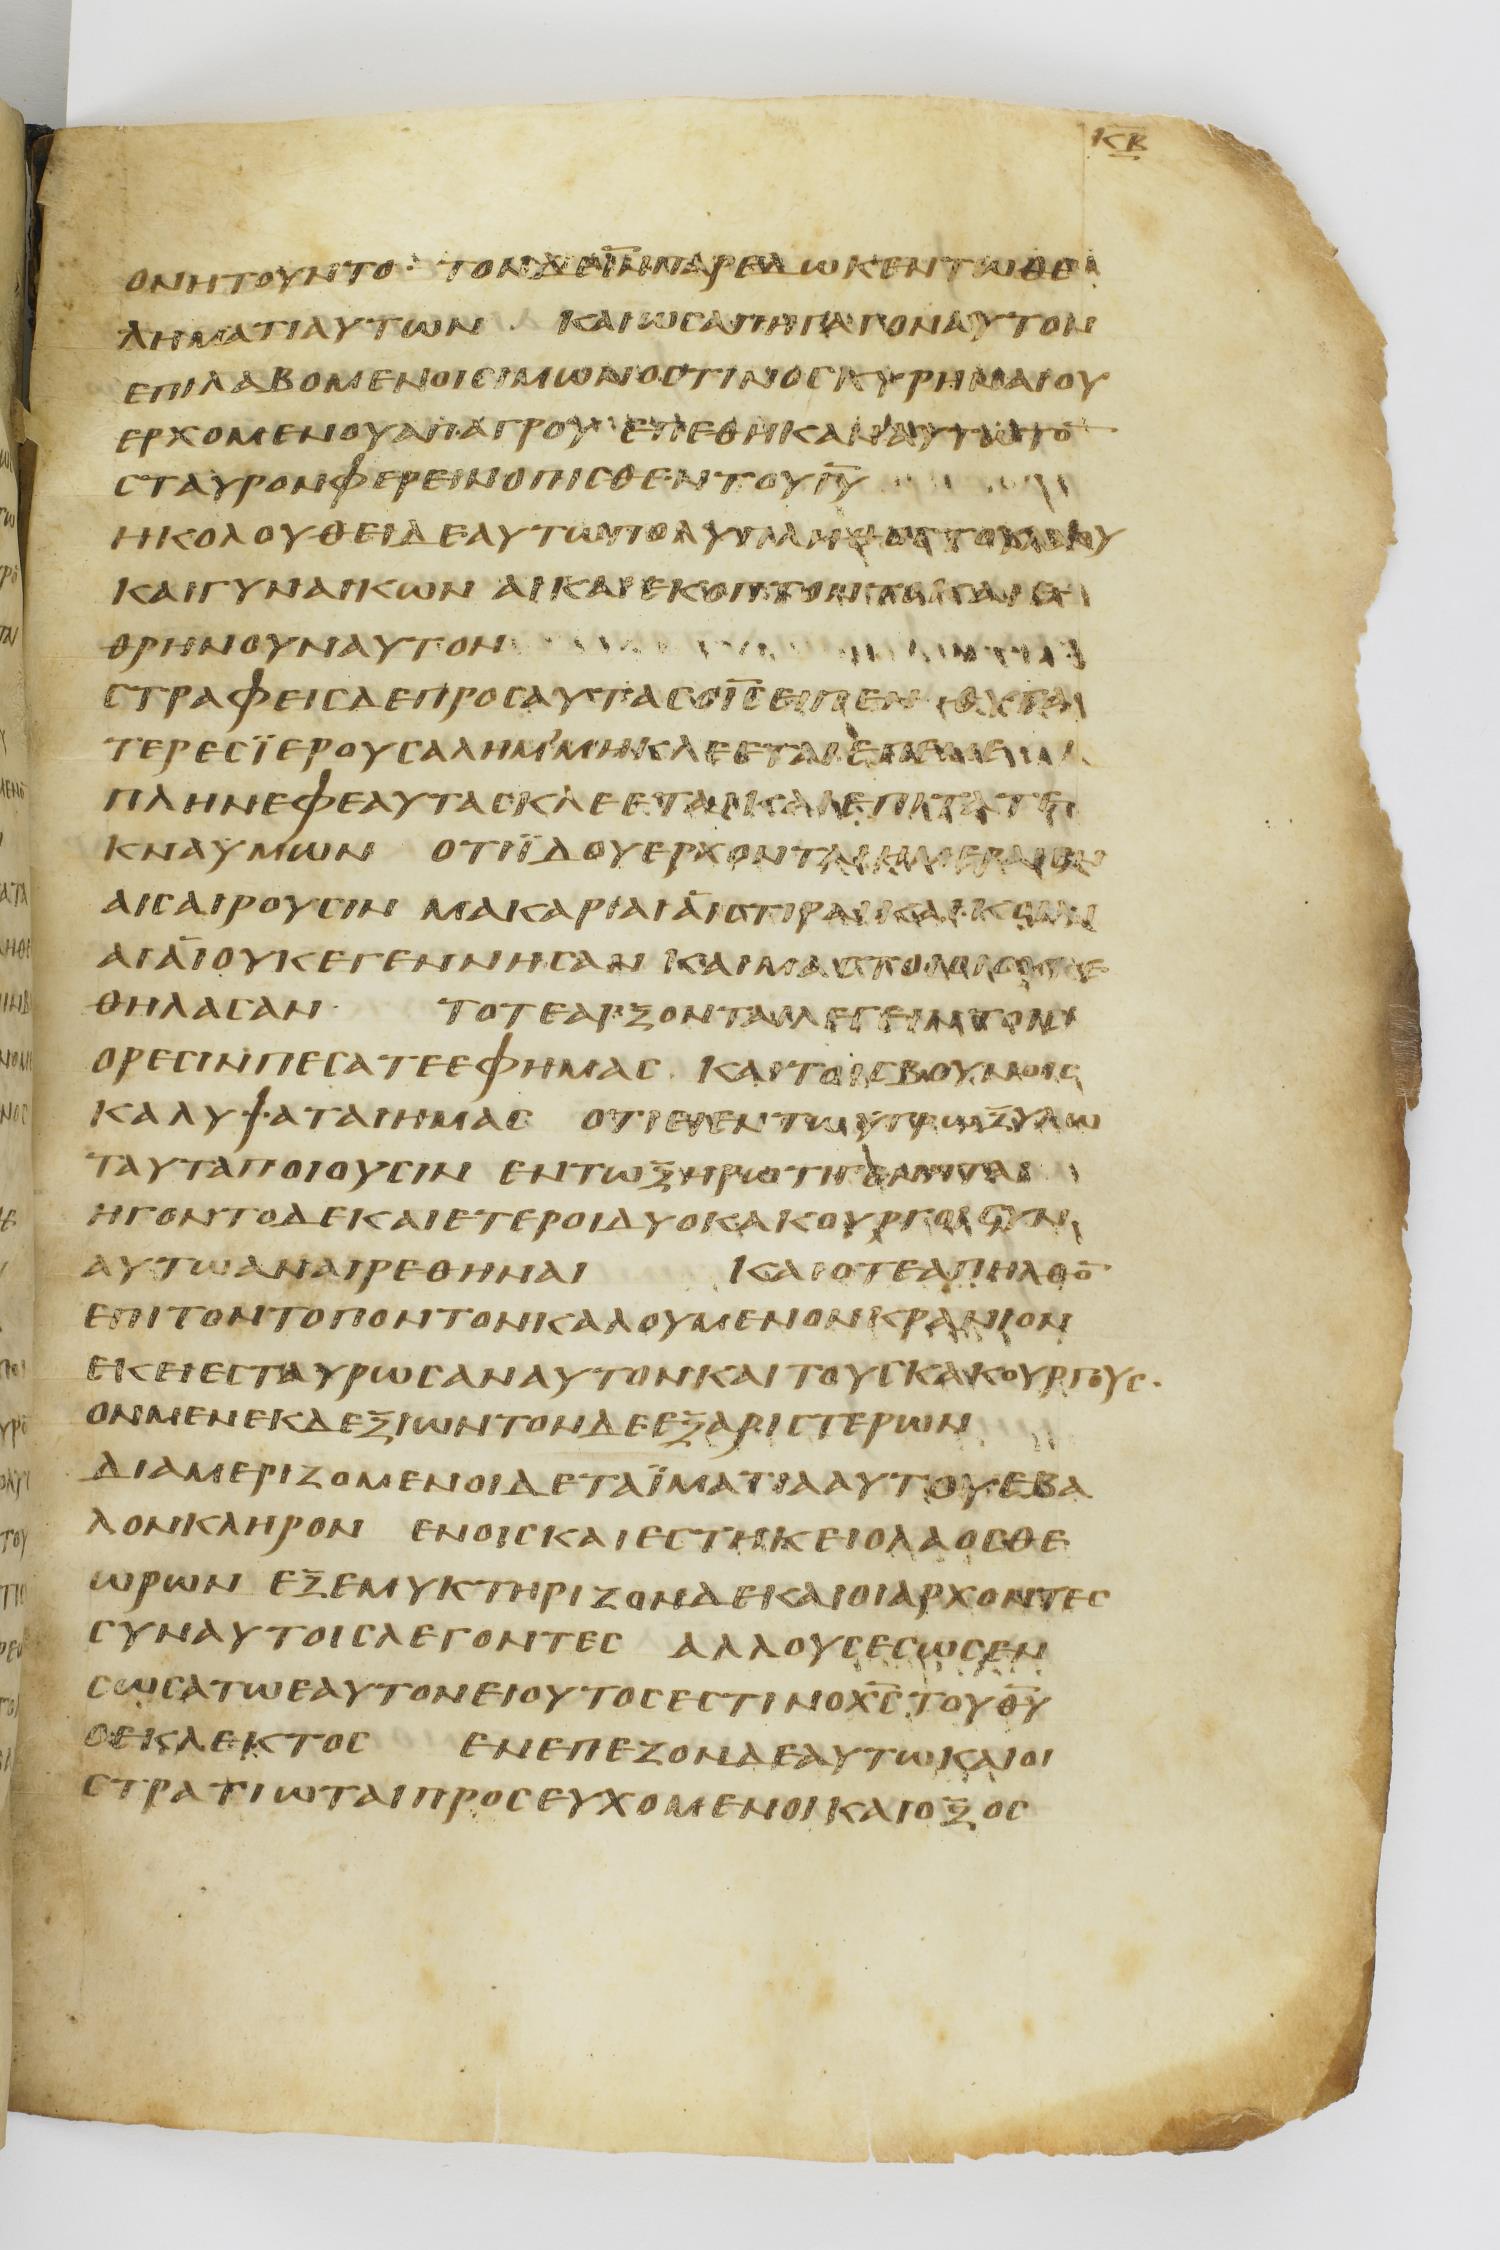 ΚΒ
ΟΝΗΤΟΥΝΤΟ· ΤΟΝΔΕΙΝ̅ΠΑΡΕΔΩΚΕΝΤΩΘΕ
ΛΗΜΑΤΙΑΥΤΩΝ ΚΑΙΩΣΑΠΗΓΑΓΟΝΑΥΤΟΝ
ΕΠΙΛΑΒΟΜΕΝΟΙΣΙΜΩΝΟΣΤΙΝΟΣΚΥΡΗΝΑΙΟΥ
ΕΡΧΟΜΕΝΟΥΑΠΑΓΡΟΥ ΕΠΕΘΗΚΑΝΑΥΤΩΤΟ̅
ΣΤΑΥΡΟΝΦΕΡΕΙΝΟΠΙΣΘΕΝΤΟΥΙΥ̅
ΗΚΟΛΟΥΘΕΙΔΕΑΥΤΩΠΟΛΥΠΛΗΘΟΣΤΟΥΛΑΟΥ
ΚΑΙΓΥΝΑΙΚΩΝ ΑΙΚΑΙΕΚΟΠΤΟΝΤΟΚΑΙΕ
ΘΡΗΝΟΥΝΑΥΤΟΝ
ΣΤΡΑΦΕΙΣΔΕΠΡΟΣΑΥΤΑΣΟΙΣ̅ΕΙΠΕΝ ΘΥΓΑ
ΤΕΡΕΣΪΕΡΟΥΣΑΛΗΜ᾽ΜΗΚΛΕΕΤΑΙΕΠΕΜΕ
ΠΛΗΝΕΦΕΑΥΤΑΣΚΛΕΕΤΑΙΚΑΙΕΠΙΤΑΤΕ
ΚΝΑΥΜΩΝ ΟΤΙΪΔΟΥΕΡΧΟΝΤΑΙΗΜΕΡΑΙΕΝ
ΑΙΣΑΙΡΟΥΣΙΝ ΜΑΚΑΡΙΑΙΑΙΣΤΙΡΑΙΚΑΙΚΟΙΛΙ
ΑΙΑΙΟΥΚΕΓΕΝΝΗΣΑΝ ΚΑΙΜΑΣΤΟΙΟΙΟΥΚΕ
ΘΗΛΑΣΑΝ· ΤΟΤΕΑΡΞΟΝΤΑΙΛΕΓΕΙΝΤΟΙΣ
ΟΡΕΣΙΝΠΕΣΑΤΕΕΦΗΜΑΣ ΚΑΙΤΟΙΣΒΟΥΝΟΙΣ
ΚΑΛΥΨΑΤΑΙΗΜΑΣ ΟΤΙΕΙΕΝΤΩΥΓΡΩΞΥΛΩ
ΤΑΥΤΑΠΟΙΟΥΣΙΝ ΕΝΤΩΞΗΡΩΤΙΓΕΝΗΤΑΙ
ΗΓΟΝΤΟΔΕΚΑΙΕΤΕΡΟΙΔΥΟΚΑΚΟΥΡΓΟΙΣΥΝ
ΑΥΤΩΑΝΑΙΡΕΘΗΝΑΙ ΚΑΙΟΤΕΑΠΗΛΘΟ̅
ΕΠΙΤΟΝΤΟΠΟΝΤΟΝΚΑΛΟΥΜΕΝΟΝΚΡΑΝΙΟΝ
ΕΚΕΙΕΣΤΑΥΡΩΣΑΝΑΥΤΟΝΚΑΙΤΟΥΣΚΑΚΟΥΡΓΟΥΣ·
ΟΝΜΕΝΕΚΔΕΞΙΩΝΤΟΝΔΕΕΞΑΡΙΣΤΕΡΩΝ
ΔΙΑΜΕΡΙΖΟΜΕΝΟΙΔΕΤΑΪΜΑΤΙΑΑΥΤΟΥΕΒΑ
ΛΟΝΚΛΗΡΟΝ ΕΝΟΙΣΚΑΙΕΣΤΗΚΕΙΟΛΑΟΣΘΕ
ΩΡΩΝ ΕΞΕΜΥΚΤΗΡΙΖΟΝΔΕΚΑΙΟΙΑΡΧΟΝΤΕΣ
ΣΥΝΑΥΤΟΙΣΛΕΓΟΝΤΕΣ ΑΛΛΟΥΣΕΣΩΣΕΝ
ΣΩΣΑΤΩΕΑΥΤΟΝΕΙΟΥΤΟΣΕΣΤΙΝΟΧΣ̅ΤΟΥΘΥ̅
ΟΕΚΛΕΚΤΟΣ ΕΝΕΠΕΖΟΝΔΕΑΥΤΩΚΑΙΟΙ
ΣΤΡΑΤΙΩΤΑΙΠΡΟΣΕΥΧΟΜΕΝΟΙΚΑΙΟΞΟΣ